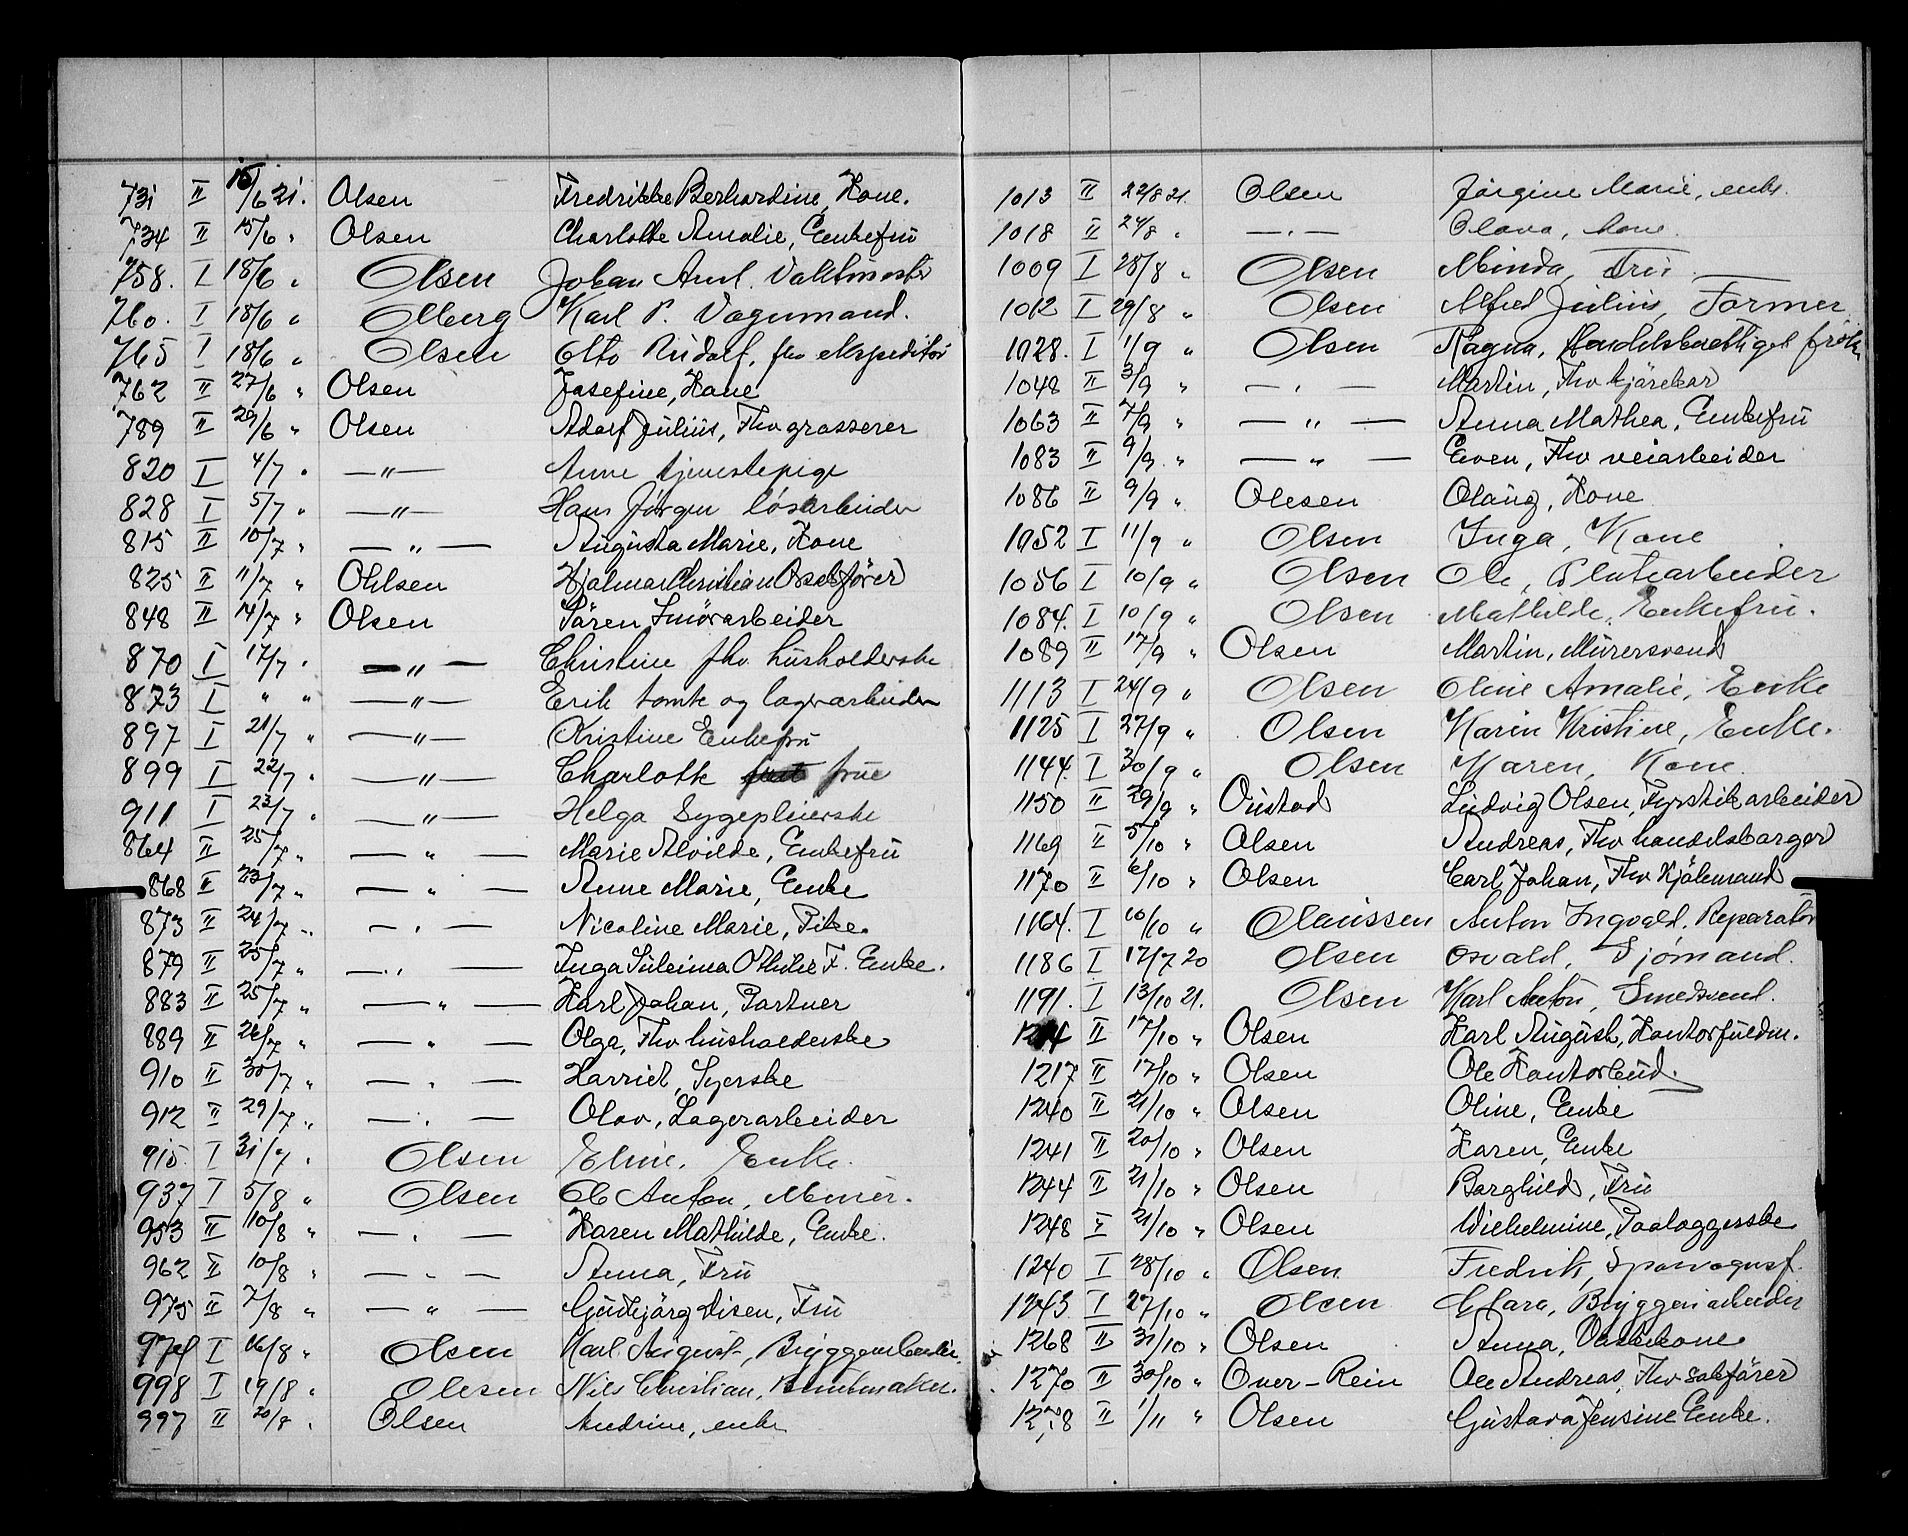 731 II 15/6 21. Olsen Fredrikke Berhardine, Kone.
734 II 15/6 " Olsen Charlotte Amalie, Enkefru
758. I 18/6 " Olsen Johan Axel. Vaktmester
760. I 18/6 " Olberg Karl P. Vognmand.
765 I 18/6 " Olsen Otto Rudolf, fhv ekspeditør
762 II 27/6 " Olsen Josefine, Kone
789 II 29/6 " Olsen Adolf Julius, Fhv grosserer
820 I 4/7 " —"— Anne tjenestepige
828 I 5/7 " —"— Hans Jørgen løsarbeider
815 II 10/7 " — " — Augusta Marie, Kone
825 II 11/7 " Ohlsen Hjalmar Christian
848 II 14/7 " Olsen Sören
870 I 17/7 " —"— Christine fhv. husholderske
873 I " " —"— Erik tomte og lagerarbeider
897 I 21/7 " —"— Kristine Enkefru
899 I 22/7 " —"— Charlotte frue
911 I 23/7 " —"— Helga Sygepleierske
864 II 25/7 " — " — Marie Alvilde, Enkefru
868 II 23/7 " — " — Anne Marie, Enke
873 II 24/7 " — " — Nicoline Marie, Pike.
879 II 25/7 " — " — Inga Enke.
883 II 25/7 " — " — Karl Johan, Gartner
889 II 26/7 " — " — Olga, Fhv husholderske
910 II 30/7 " — " — Harriet, Syerske
912 II 29/7 " — " — Olav, Lagerarbeider
915. I 31/7 " Olsen Eline. Enke.
937 I 5/8 " Olsen Ole Anton, Murer.
953 II 10/8 " — " — Karen Mathilde, Enke.
962 II 10/8 " — " — Anna, Fru
975 II 7/8 " — " — Gudbjörg Disen, Fru
974 I 16/8 " Olsen Karl August, Bryggearbeider.
998 I 19/8 " Olesen Nils Christian, Buntmaker.
997 II 20/8 " Olsen Andrine, enke
1013 II 22/8 21. Olsen Jörgine Marie, enke.
1018 II 24/8 " — " — Olava, kone.
1009 I 28/8 " Olsen Minda, Fru.
1012 I 29/8 " Olsen Alfred Julius, Former
1028. I 1/9 " Olsen Ragna, Handelsberettiget frøken
1048 II 3/9 " — " — Martin, Fhv kjörekar
1063 II 7/9 " — " — Anna Mathea, Enkefru
1083 II 9/9 " — " — Even, Fhv veiarbeider
1086 II 9/9 " Olesen Olaug, Kone
1052 I 11/9 " Olsen Inga, Kone
1056 I 10/9 " Olsen Ole,
1084. I 10/9 " Olsen Mathilde, Enkefru.
1089 II 17/9 " Olsen Martin, Murersvend
1113 I 24/9 " Olsen Oline Amalie, Enke
1125 I 27/9 " Olsen Karen Kristine, Enke.
1144. I 30/9 " Olsen Karen, Kone.
1150 II 29/9 " Oustad Ludvig Olsen, Fyrstikarbeider
1169 II 5/10 " Olsen Andreas, Fhv handelsborger
1170 II 6/10 " Olsen Carl Johan, Fhv Kjölemand
1164. I 10/10 " Olaussen Anton Ingvald. Reparatør
1186 I 17/7 20 Olsen Osvald, Sjømand.
1191. I 13/10 21. Olsen Karl Anton, Smedsvend.
II 17/10 " Olsen Karl August, Kontorfuldm.
1217 II 17/10 " Olsen Ole Kontorbud.
1240 II 21/10 " Olsen Oline, Enke
1241 II 20/10 " Olsen Karen, Enke
1244 II 21/10 " Olsen Borghild, Fru
1248 II 21/10 " Olsen Wilhelmine, Paaleggerske
1240 I 28/10 " Olsen Fredrik, Sporvognsf.
1243 I 27/10 " Olsen Clara, Bryggeriarbeider
1268 II 31/10 " Olsen Anna, Vaskekone
1270 II 30/10 " Over-Rein Ole Andreas, Fhv
1278 II 1/11 " Olsen Gustava Jensine Enke.